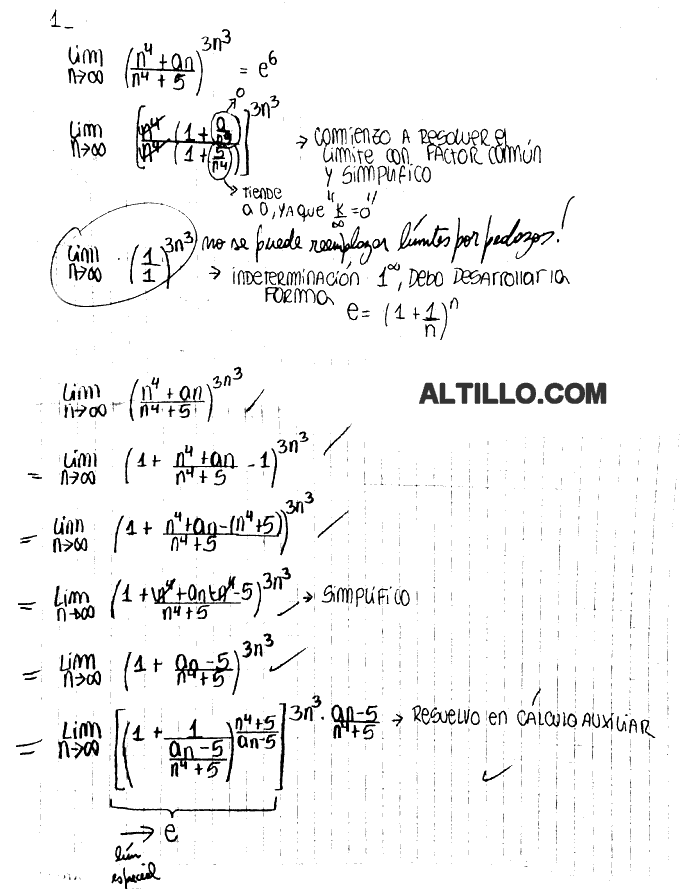 1_
lim n→∞ (n⁴ + an / n⁴ + 5)^3n³ = e⁶
lim n→∞ [n⁴ (1 + a/n³) / n⁴ (1 + 5/n⁴)]^3n³ → 0 → COMIENZO A RESOLVER EL
LIMITE CON FACTOR COMÚN
Y SIMPLIFICO
→ TIENDE
a 0, YA QUE "K/∞ = 0"
lim n→∞ (1/1)^3n³ no se puede reemplazar límites por pedazos!
→ INDETERMINACIÓN 1^∞, DEBO DESARROLLAR LA
FORMA e = (1 + 1/n)^n
lim n→∞ (n⁴ + an / n⁴ + 5)^3n³ ✓
ALTILLO.COM
= lim n→∞ (1 + n⁴ + an / n⁴ + 5 - 1)^3n³ ✓
= lim n→∞ (1 + n⁴ + an - (n⁴ + 5) / n⁴ + 5)^3n³ ✓
= lim n→∞ (1 + n⁴ + an - n⁴ - 5 / n⁴ + 5)^3n³ ✓ → SIMPLIFICO
= lim n→∞ (1 + an - 5 / n⁴ + 5)^3n³ ✓
= lim n→∞ [(1 + 1 / an - 5 / n⁴ + 5)^n⁴ + 5 / an - 5]^3n³ · an - 5 / n⁴ + 5 → RESUELVO EN CÁLCULO AUXILIAR
✓
→ e
lím
especial